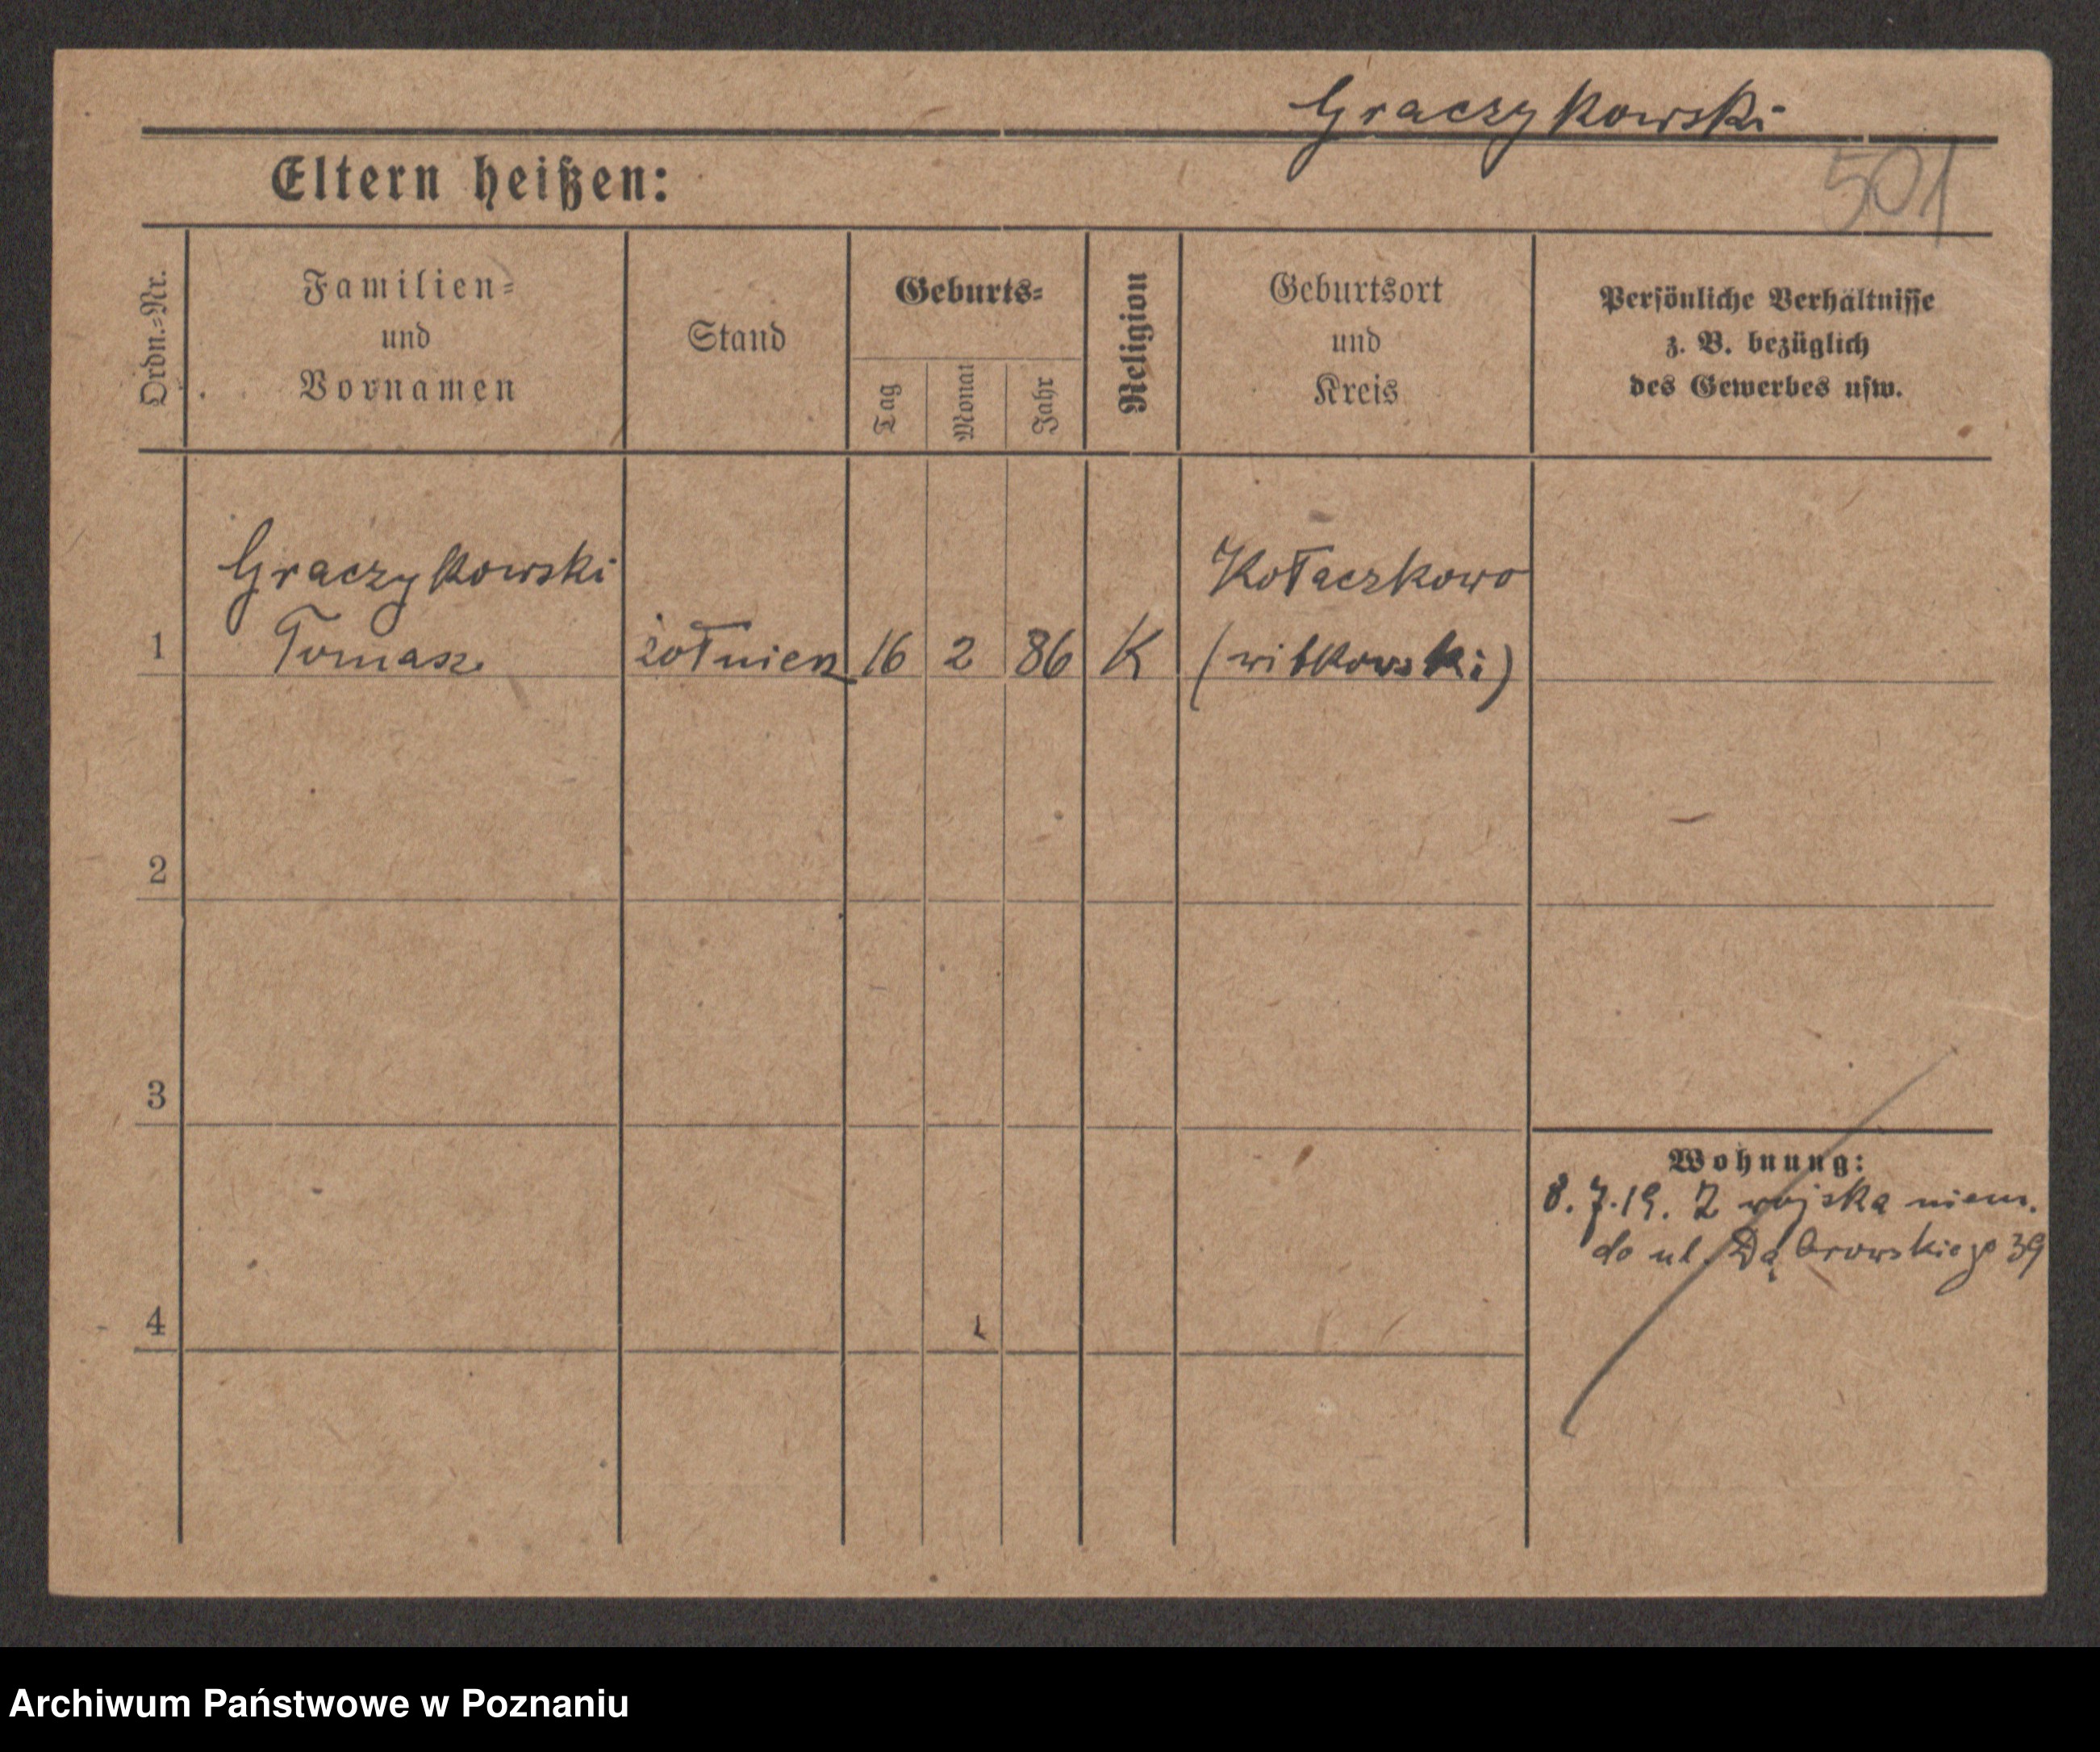 Graczykowski
Eltern heißen:
501
Ordn.=Nr.
Familien=
und
Vornamen
Stand
Geburts=
Tag
Monat
Jahr
Religion
Geburtsort
und
Kreis
Persönliche Verhältnisse
z. B. bezüglich
des Gewerbes usw.
Graczykowski
Kołaczkowo
1 Tomasz żołnierz 16 2 86 K (witkowski)
2
3
Wohnung:
8.7.19. Z wojska niem.
do ul. Dąbrowskiego 39
4
Archiwum Państwowe w Poznaniu